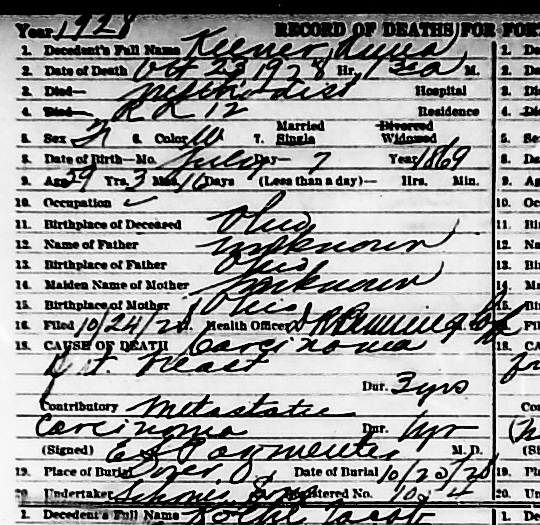 Year 1928 RECORD OF DEATHS FOR FORT
1. Decedent's Full Name Keener, Anna
2. Date of Death Oct 23 1928 Hr. 1 30 a M.
3. Died— Methodist Hospital
4. Died— R R 12 Residence
5. Sex F 6. Color W 7. Married Single Divorced Widowed
8. Date of Birth—Mo. July Day— 7 Year 1869
9. Age 59 Yrs. 3 Mos. 16 Days (Less than a day)— Hrs. Min.
10. Occupation
11. Birthplace of Deceased Ohio
12. Name of Father unknown
13. Birthplace of Father Ohio
14. Maiden Name of Mother unknown
15. Birthplace of Mother Ohio
16. Filed 10/24/28. Health Officer
18. CAUSE OF DEATH Carcinoma
Rt. Breast
Dur. 3 yrs
Contributory Metastatic
Carcinoma Dur. 1 yr
(Signed) M. D.
19. Place of Burial Date of Burial 10/25/28
20. Undertaker Sons Registered No. 1024
1. Decedent's Full Name Jacob